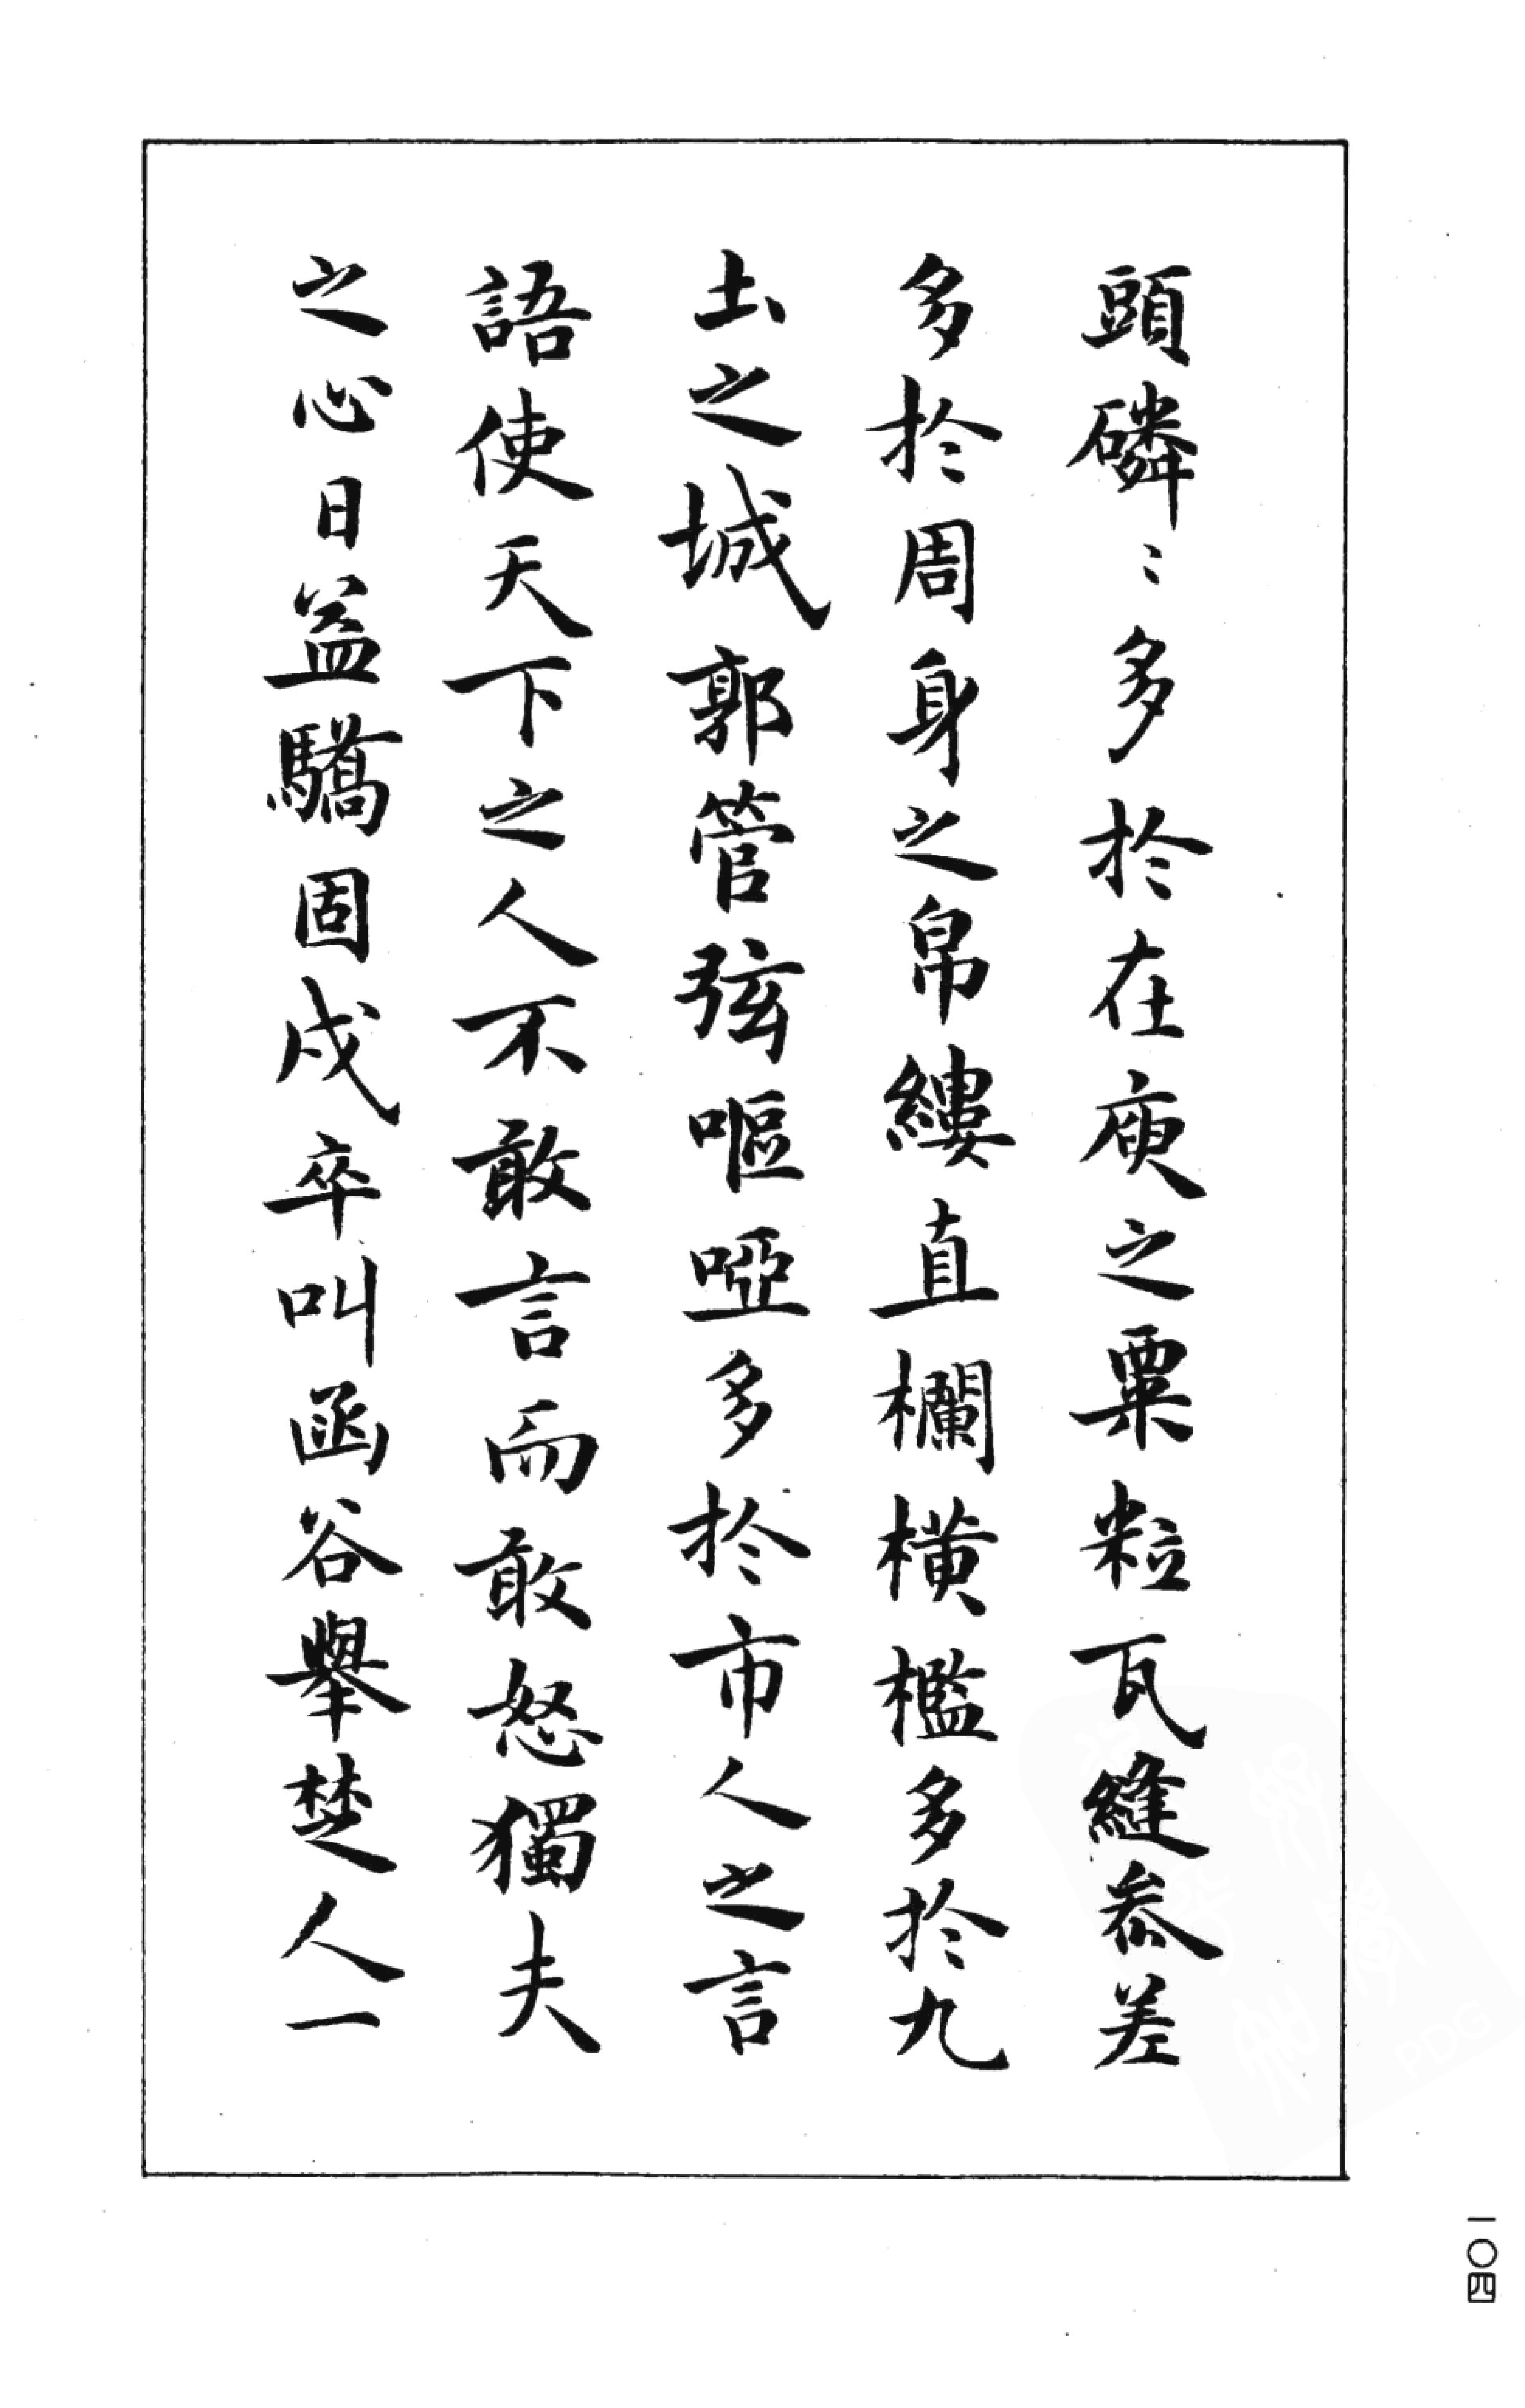 頭磷〻多於在庾之粟粒瓦縫叅差
多於周身之帛縷直欄橫檻多於九
土之城郭管弦嘔啞多於市人之言
語使天下之人不敢言而敢怒獨夫
之心日益驕固戍卒叫函谷舉楚人一
一〇四